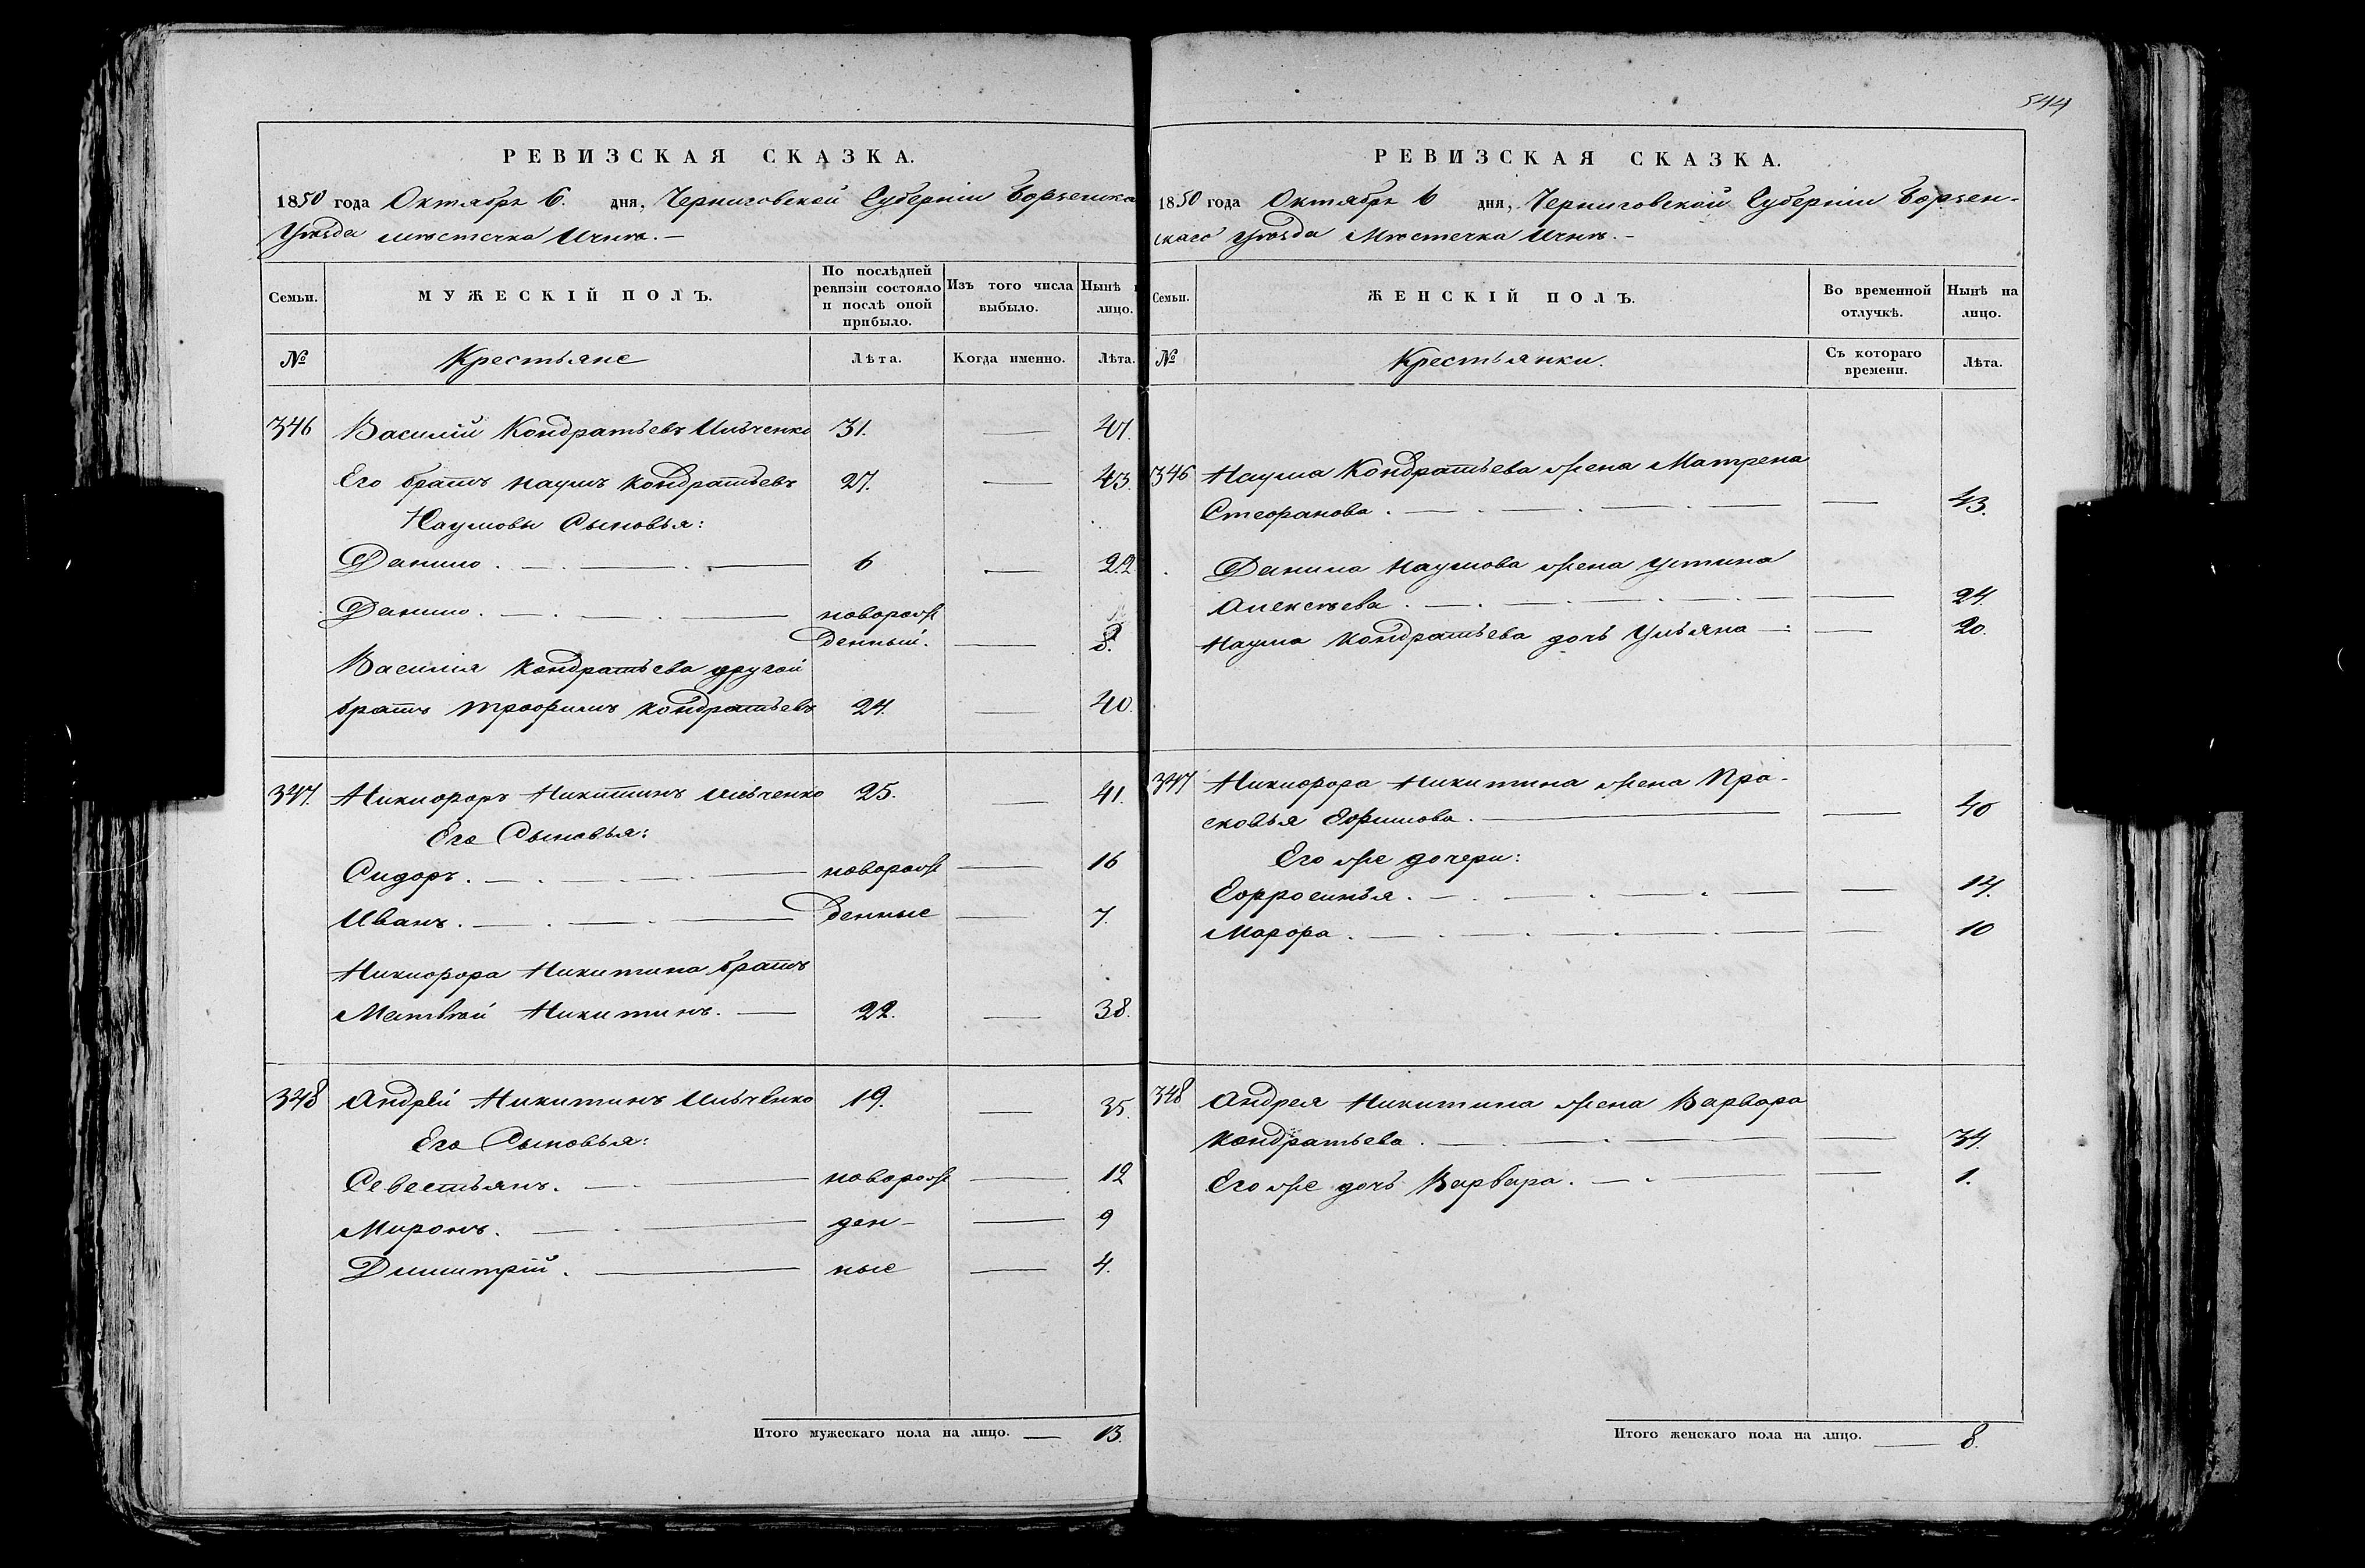 РЕВИЗСКАЯ СКАЗКА.
1850 года Октября 6. дня, Черниговской Губерніи Борзенска
Уѣзда мѣстечка Ичнѣ.—
Семьи.
МУЖЕСКІЙ ПОЛЪ.
По послѣдней ревизіи состояло и послѣ оной прибыло.
Изъ того числа выбыло.
Нынѣ лицо.
№
Крестьяне
Лѣта.
Когда именно.
Лѣта.
346 Василій Кондратьевъ Ильченко 31. — 47.
Его братъ Наумъ Кондратьевъ 27. — 43.
Наумовы Сыновья:
Данило. — 6 — 22
Данило. — новорож
денный. —
Василія Кондратьева другой
братъ Трофимъ Кондратьевъ 24. — 40.
347. Никифоръ Никитинъ Ильченко 25. — 41.
Его Сыновья:
Сидоръ. — новорож — 16
Иванъ. — денные — 7.
Никифора Никитина братъ
Матвѣй Никитинъ. — 22. — 38.
348 Андрей Никитинъ Ильченко 19. — 35.
Его Сыновья:
Севестьянъ. — новорож — 12
Миронъ. — ден- — 9
Димитрій. — ные — 4.
Итого мужескаго пола на лицо. — 13.
544
РЕВИЗСКАЯ СКАЗКА.
1850 года Октября 6 дня, Черниговской Губерніи Борзен-
скаго Уѣзда Мѣстечка Ичнѣ.—
Семьи.
ЖЕНСКІЙ ПОЛЪ.
Во временной отлучкѣ.
Нынѣ на лицо.
№
Крестьянки.
Съ котораго времени.
Лѣта.
346 Наума Кондратьева жена Матрена
Стефанова. — 43.
Данила Наумова жена Устина
Алексѣева. — 24.
Наума Кондратьева дочь Ульяна — 20.
347 Никифора Никитина жена Пра-
сковья Ефимова. — 40
Его же дочери:
Ефросинья. — 14.
Марфа. — 10
348 Андрея Никитина жена Варвара
Кондратьева. — 34.
Его же дочь Варвара. — 1.
Итого женскаго пола на лицо. — 8.